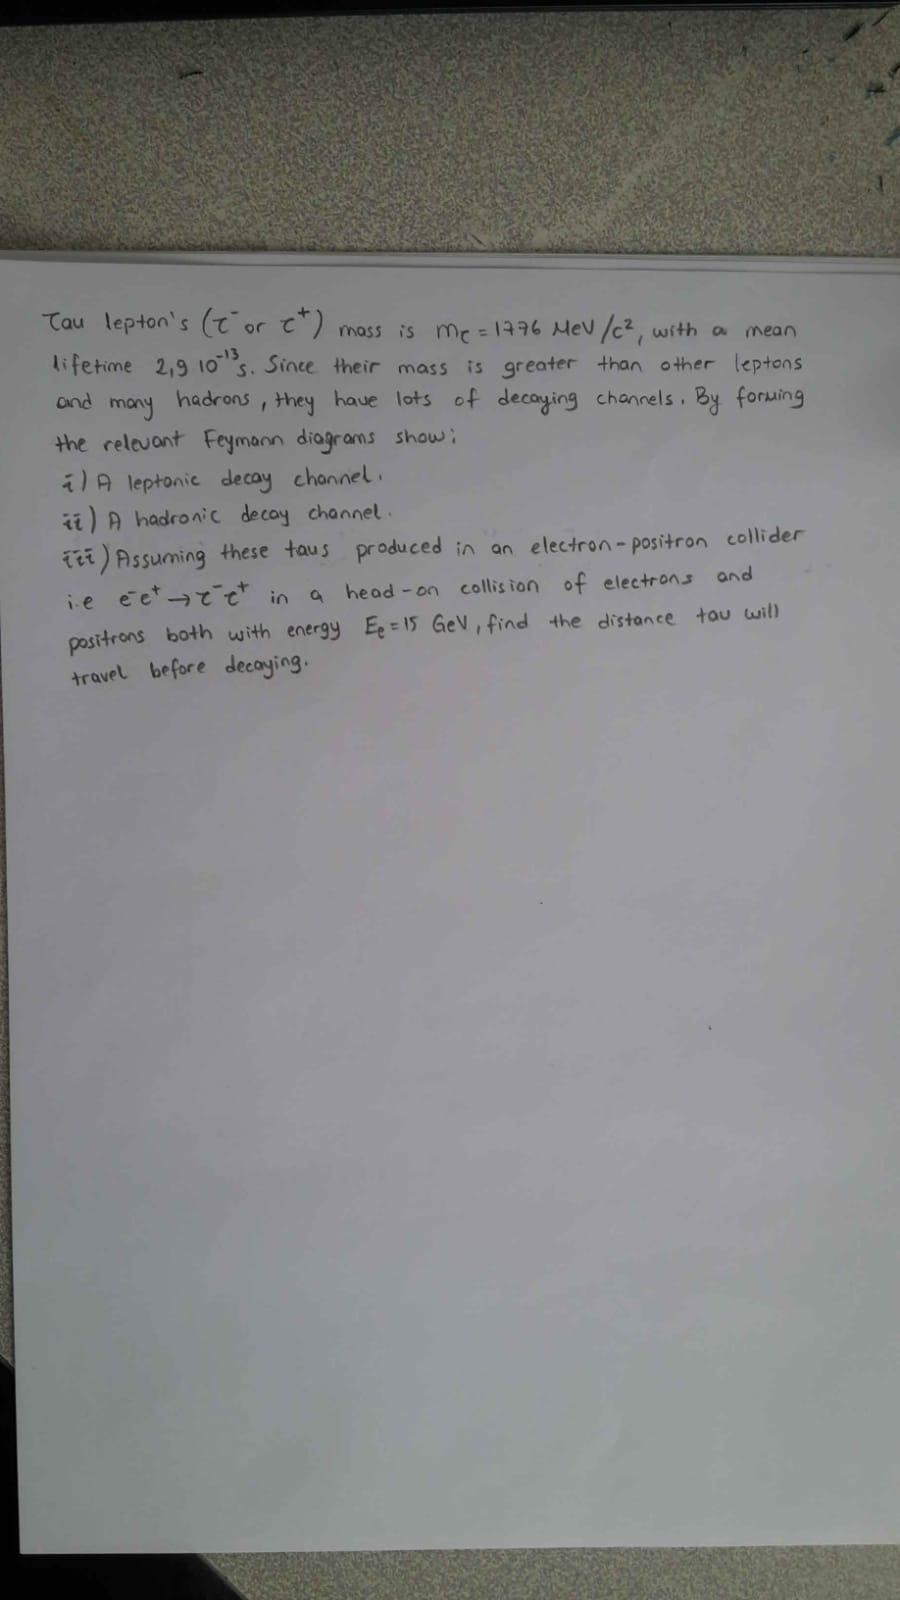 Tau lepton's (τ⁻ or τ⁺) mass is mτ = 1776 MeV/c², with a mean
lifetime 2,9 10⁻¹³s. Since their mass is greater than other leptons
and many hadrons, they have lots of decaying channels. By forming
the relevant Feymann diagrams show;
i) A leptonic decay channel.
ii) A hadronic decay channel.
iii) Assuming these taus produced in an electron-positron collider
i.e e⁻e⁺ → τ⁻τ⁺ in a head-on collision of electrons and
positrons both with energy Eₑ = 15 GeV, find the distance tau will
travel before decaying.